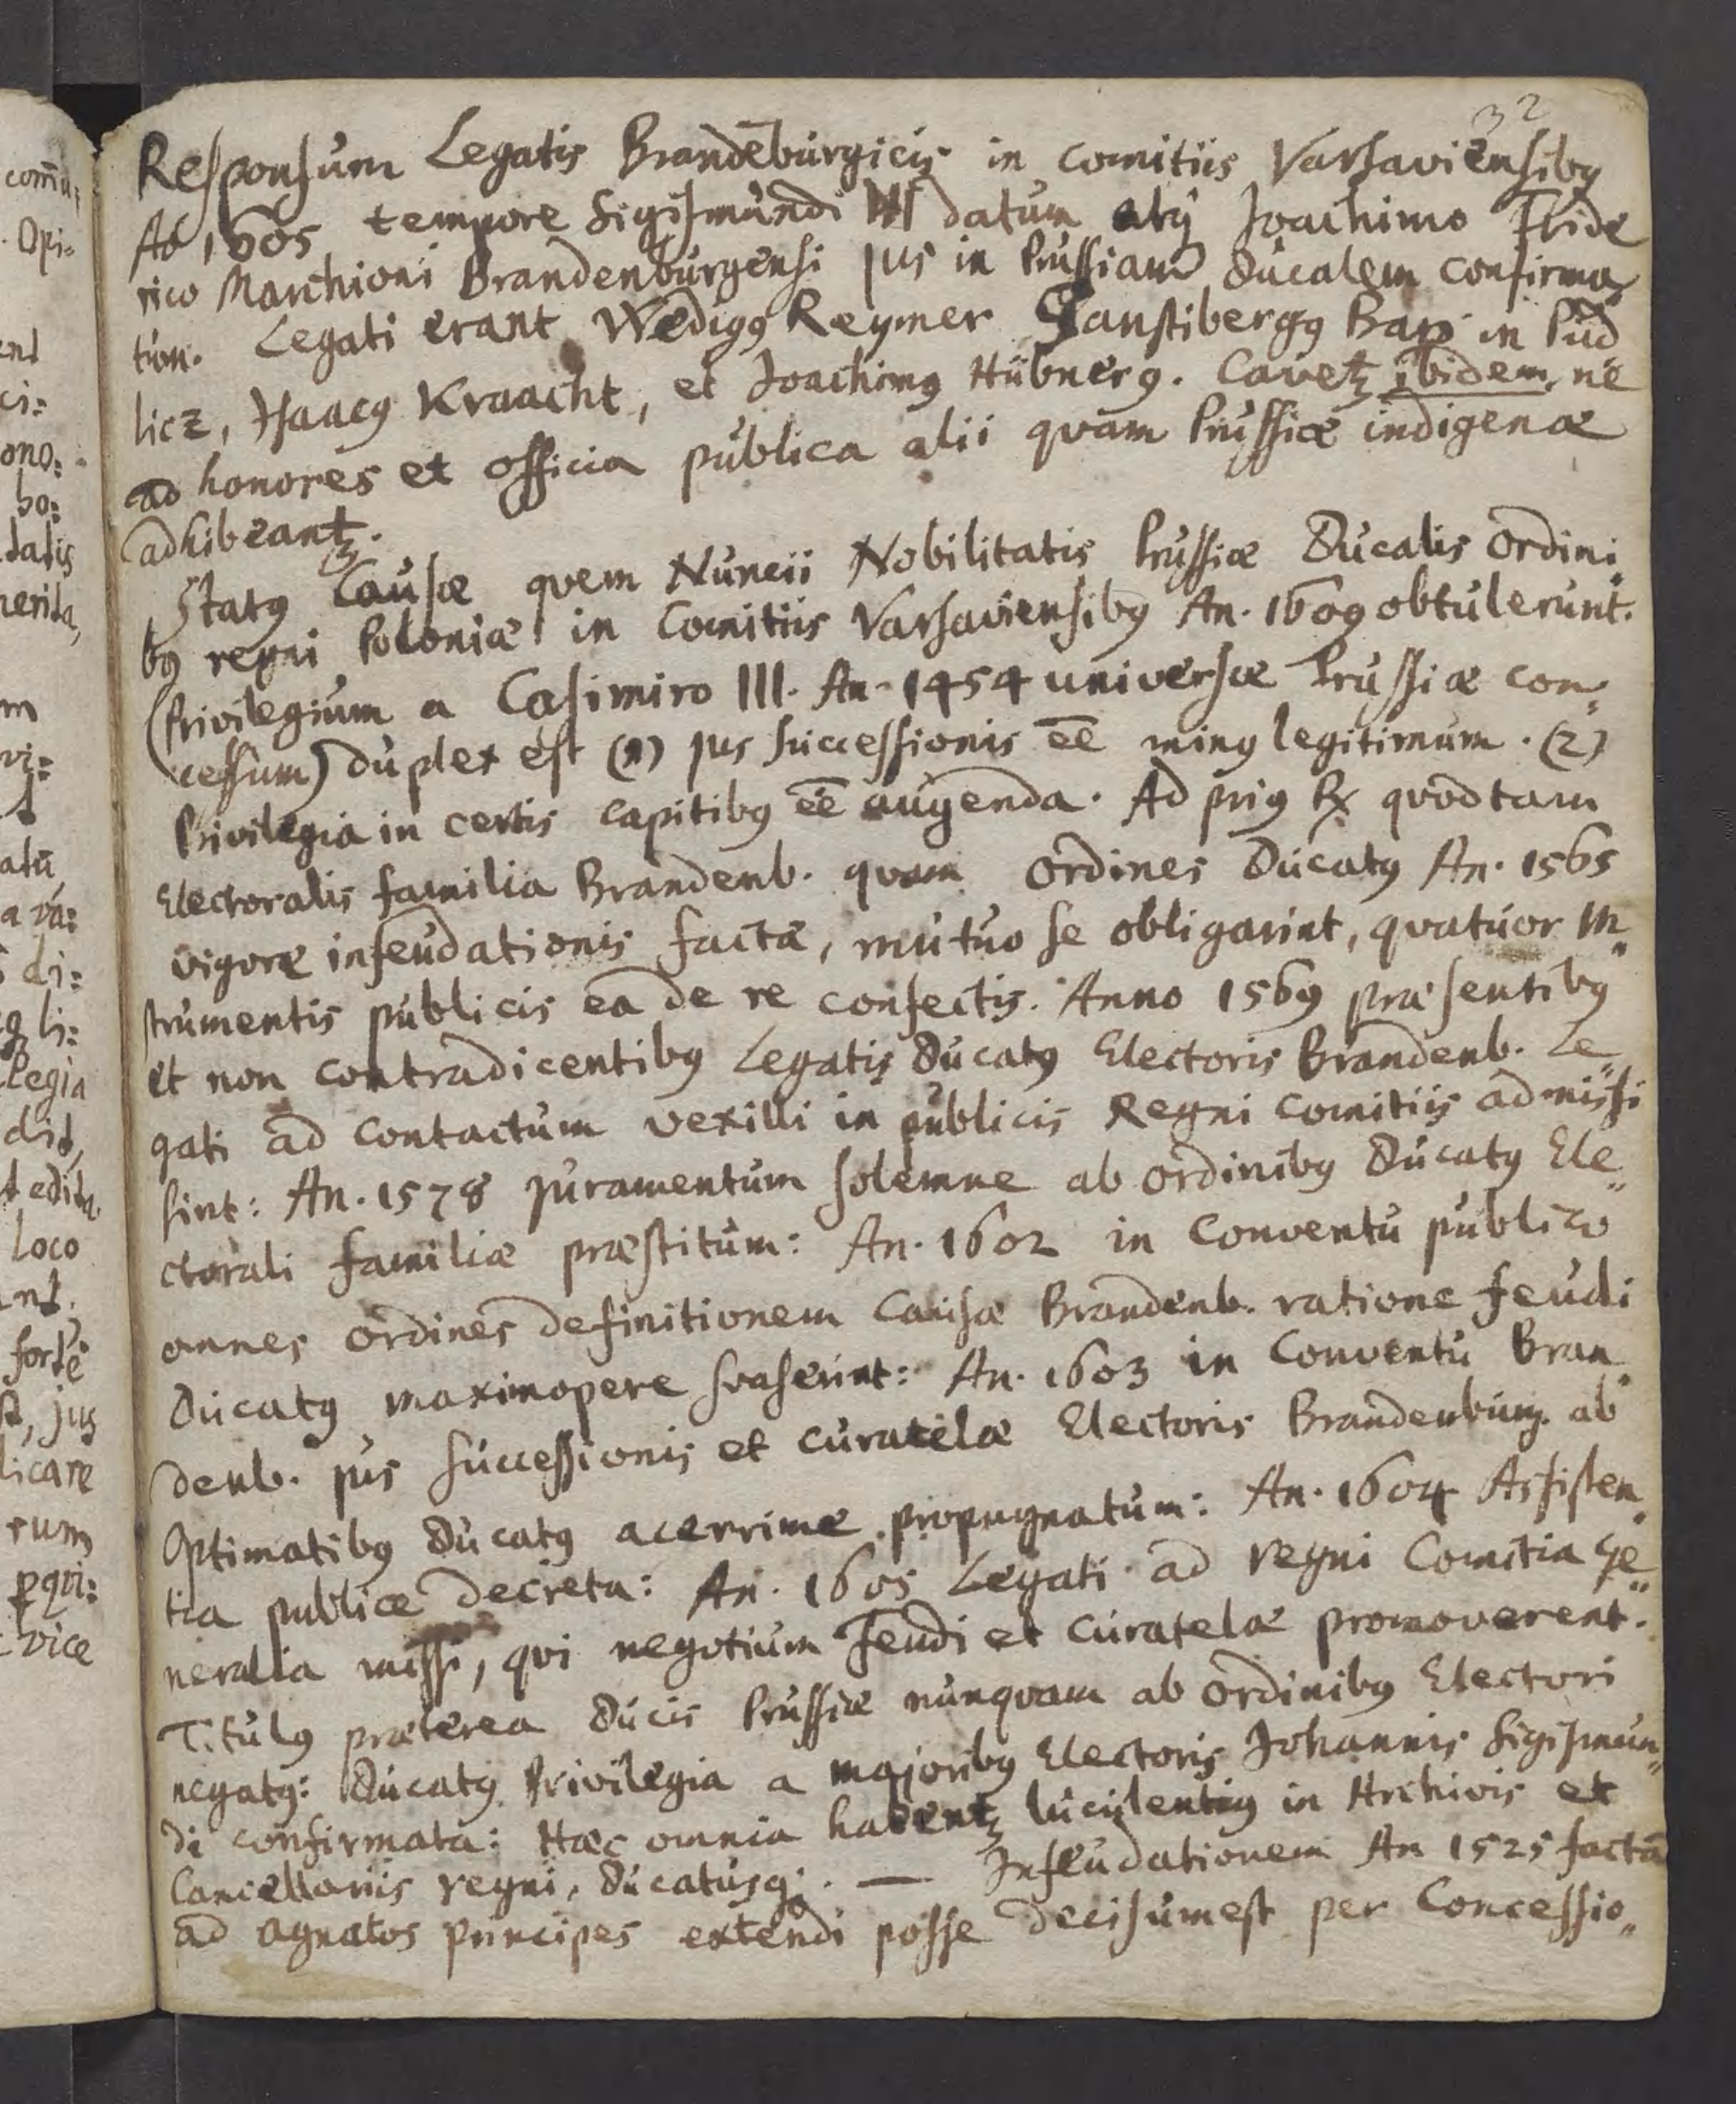 32
Responsum Legatis Brandeburgicis in comitiis Varsaviensibꝰ
Ao 1605 tempore Sigismundi III datum atq; Joachimo Fride
rico Marchioni Brandenburgensi jus in Prussiam ducalem confirma,,
tum. Legati erant Wedigꝰ Reymer Ganstibergꝰ Baro in Pud
licz, Isaacꝰ Kraacht, et Joachimꝰ Hübnerꝰ. Cavetꝫ ibidem, ne
ad honores et officia publica alii quam Prussiæ indigenæ
adhibeantꝫ.
Statꝰ Causæ quem Nuncii Nobilitatis Prussiæ Ducalis Ordini,,
bꝰ regni Poloniæ in Comitiis Varsaviensibꝰ An. 1609 obtulerunt.
(Privilegium a Casimiro III. An. 1454 universæ Prussiæ con,,
cessum) duplex est (1) jus successionis ēe minꝰ legitimum. (2)
Privilegia in certis capitibꝰ ēe augenda. Ad priꝰ ℞ quod tam
Electoralis familia Brandenb. quam Ordines Ducatꝰ An. 1565
vigore infeudationis factæ, mutuo se obligarint, quatuor In,,
strumentis publicis ea de re confectis. Anno 1569 præsentibꝰ
et non contradicentibꝰ Legatis Ducatꝰ Electoris Brandenb. Le,,
gati ad contactum vexilli in publicis Regni comitiis admissi
sint: An. 1578 juramentum solemne ab ordinibꝰ Ducatꝰ Ele,,
ctorali familiæ præstitum: An. 1602 in Conventu publico
omnes ordines definitionem Causæ Brandenb. ratione feudi
Ducatꝰ maximopere svaserint: An. 1603 in Conventu Bran,,
denb. jus successionis et curatelæ Electoris Brandenburg. ab
Optimatibꝰ Ducatꝰ acerrime propugnatum: An. 1604 Assisten,,
tia publice decreta: An. 1605 Legati ad regni Comitia Ge,,
neralia missi, qvi negotium Feudi et Curatelæ promoverent.
Titulꝰ præterea Ducis Prussiæ nunqvam ab Ordinibꝰ Electori
negatꝰ: Ducatꝰ Privilegia a majoribꝰ Electoris Johannis Sigismun,,
di confirmata: Hæc omnia habentꝫ luculentiꝰ in Archivis et
Cancellariis regni, Ducatusq;. — Infeudationem An 1525 factā
ad agnatos principes extendi posse decisum est per Concessio,,